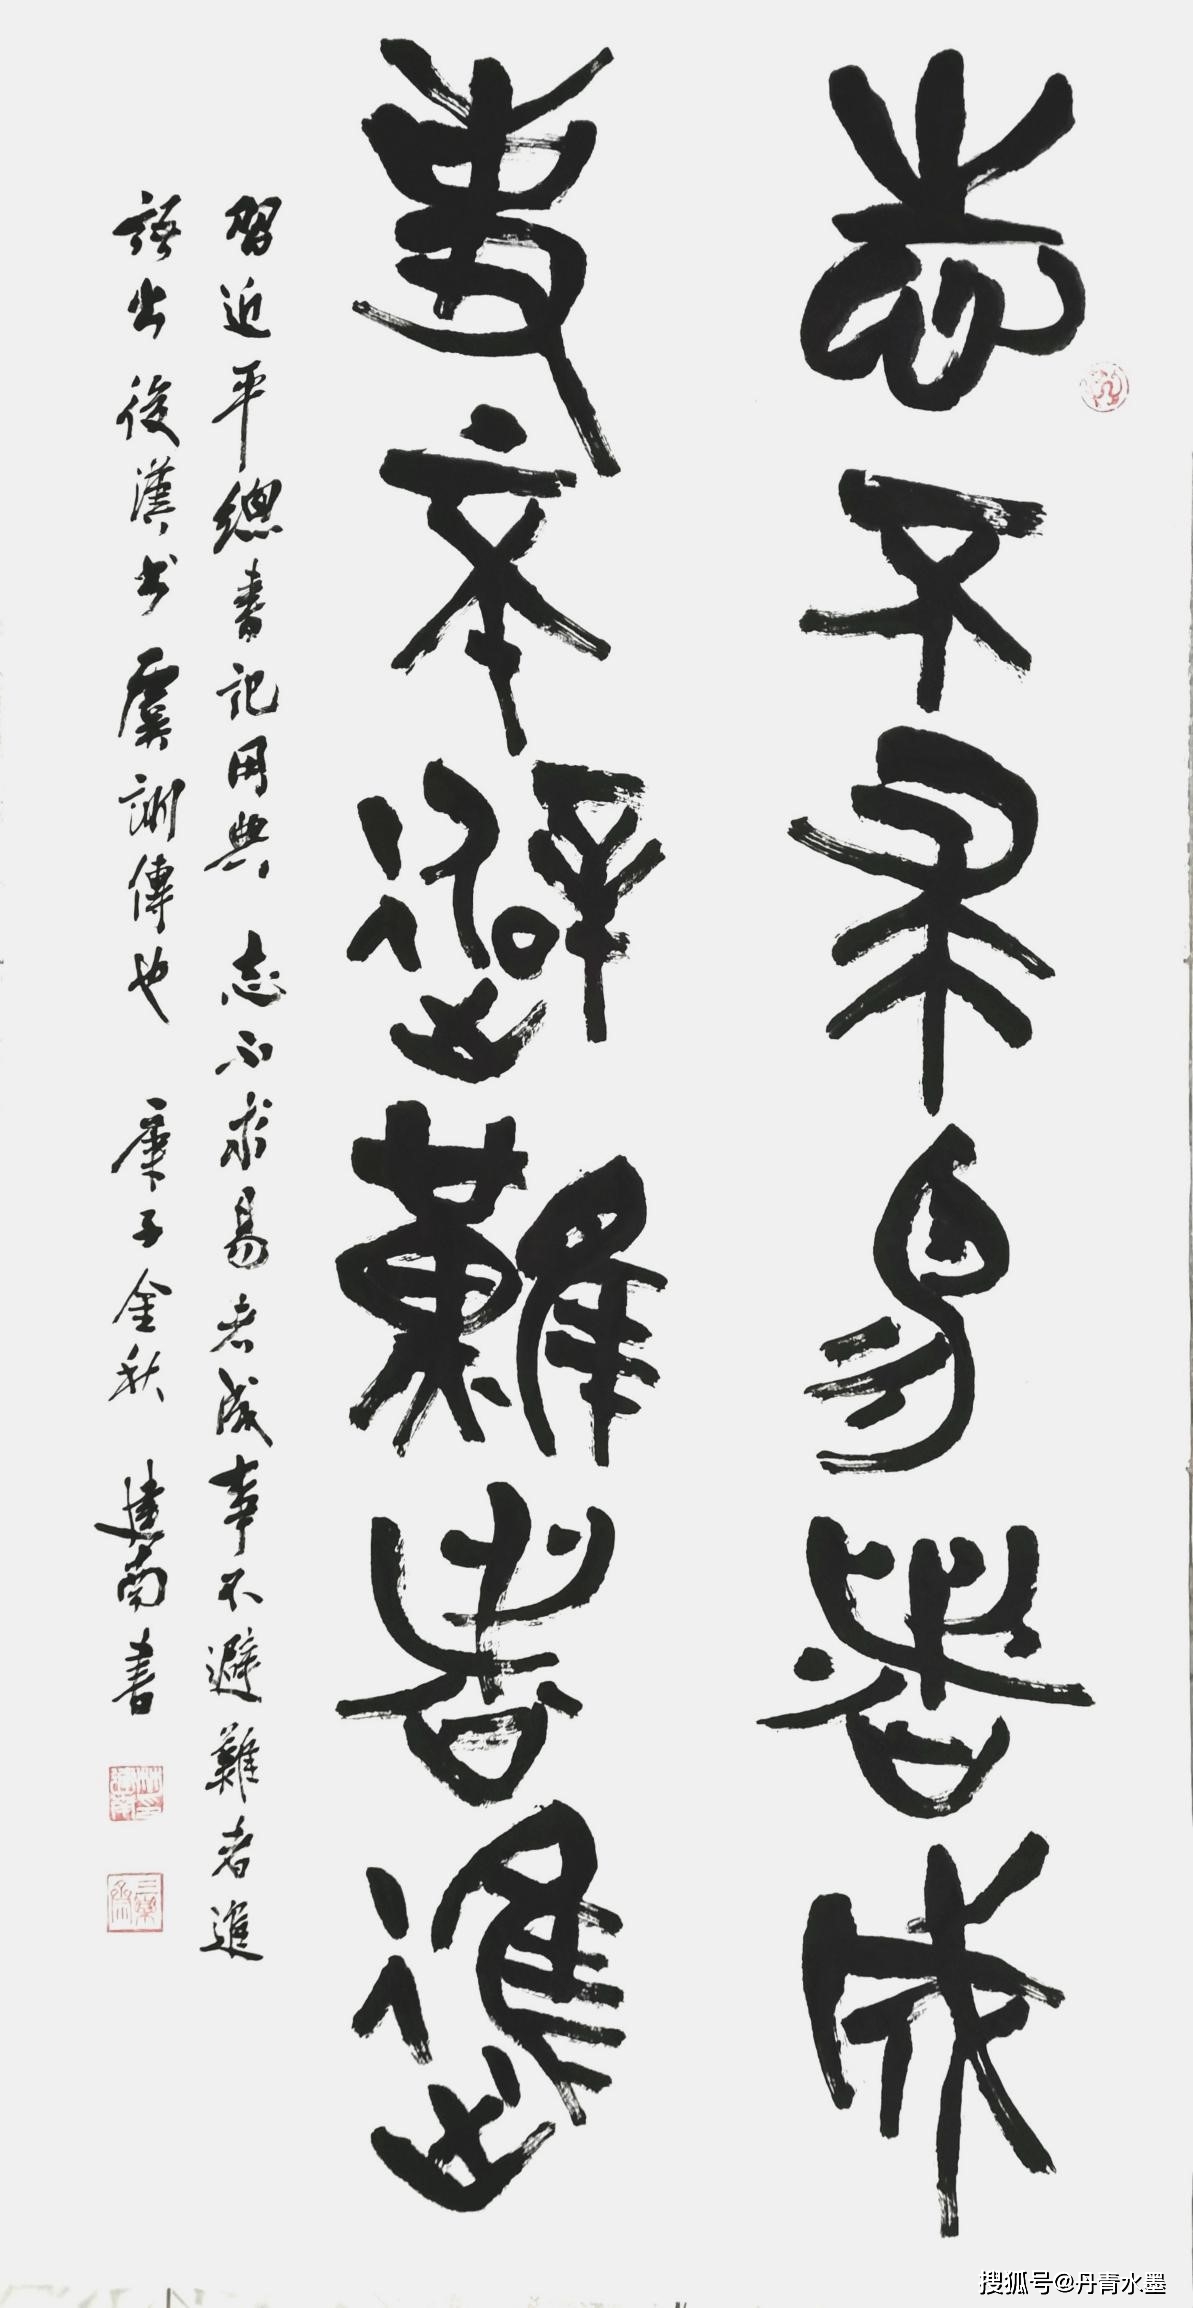 志不求易者成
事不避難者進
習近平總書記用典 志不求易者成事不避難者進
語出後漢书虞詡傳也 庚子金秋 建南書
搜狐号@丹青水墨